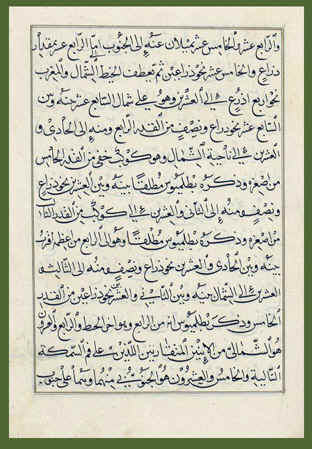 والرابع عشر والخامس عشر يميلان عنه إلى الجنوب اما الرابع عشر بمقدار
ذراع والخامس عشر بنحو ذراعين ثم ينعطف الخيط الشمال والمغرب
نحو اربع اذرع إلى العشرين وهو على شمال التاسع عشر بينه وبين
التاسع عشر نحو ذراع ونصف من القدر الرابع ومنه إلى الحادى و
العشرين إلى ناحية الشمال وهو كوكب خفى من القدر الخامس
من اصغره وذكره بطلميوس مطلقا بينه وبين العشرين نحو ذراع
ونصف ومنه إلى الثانى والعشرين كوكب من القدر
من اصغره وذكره بطلميوس مطلقا وهو الرابع من اعظمه اقرب
بينه وبين الحادى والعشرين نحو ذراع ونصف ومنه إلى الثالث و
العشرين إلى الشمال بينه وبين الثانى والعشرين نحو ذراعين من القدر
الخامس وذكر بطلميوس انه من الرابع وهو اخر الخط والرابع والعشرون
هو الشمالى من الاثنين المتقاربين اللذين على فم السمكة
التالية والخامس والعشرون هو الجنوبى منهما وهما على جنوب